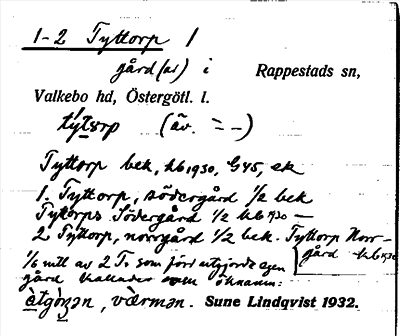 1-2 Tyttorp 1
gård(ar) i Rappestads sn,
Valkebo hd, Östergötl. l.
týtorp (äv. = –)
Tyttorp bek, kb 1930, G45, ek
1. Tyttorp, södergård 1/2 bek
Tyttorps Södergård 1/2 kb 1930 –
2 Tyttorp, norrgård 1/2 bek. Tyttorp Norr-
gård kb 1930
1/6 mtl av 2 T. som förr utgjorde egen
gård kallades som öknamn:
Sune Lindqvist 1932.